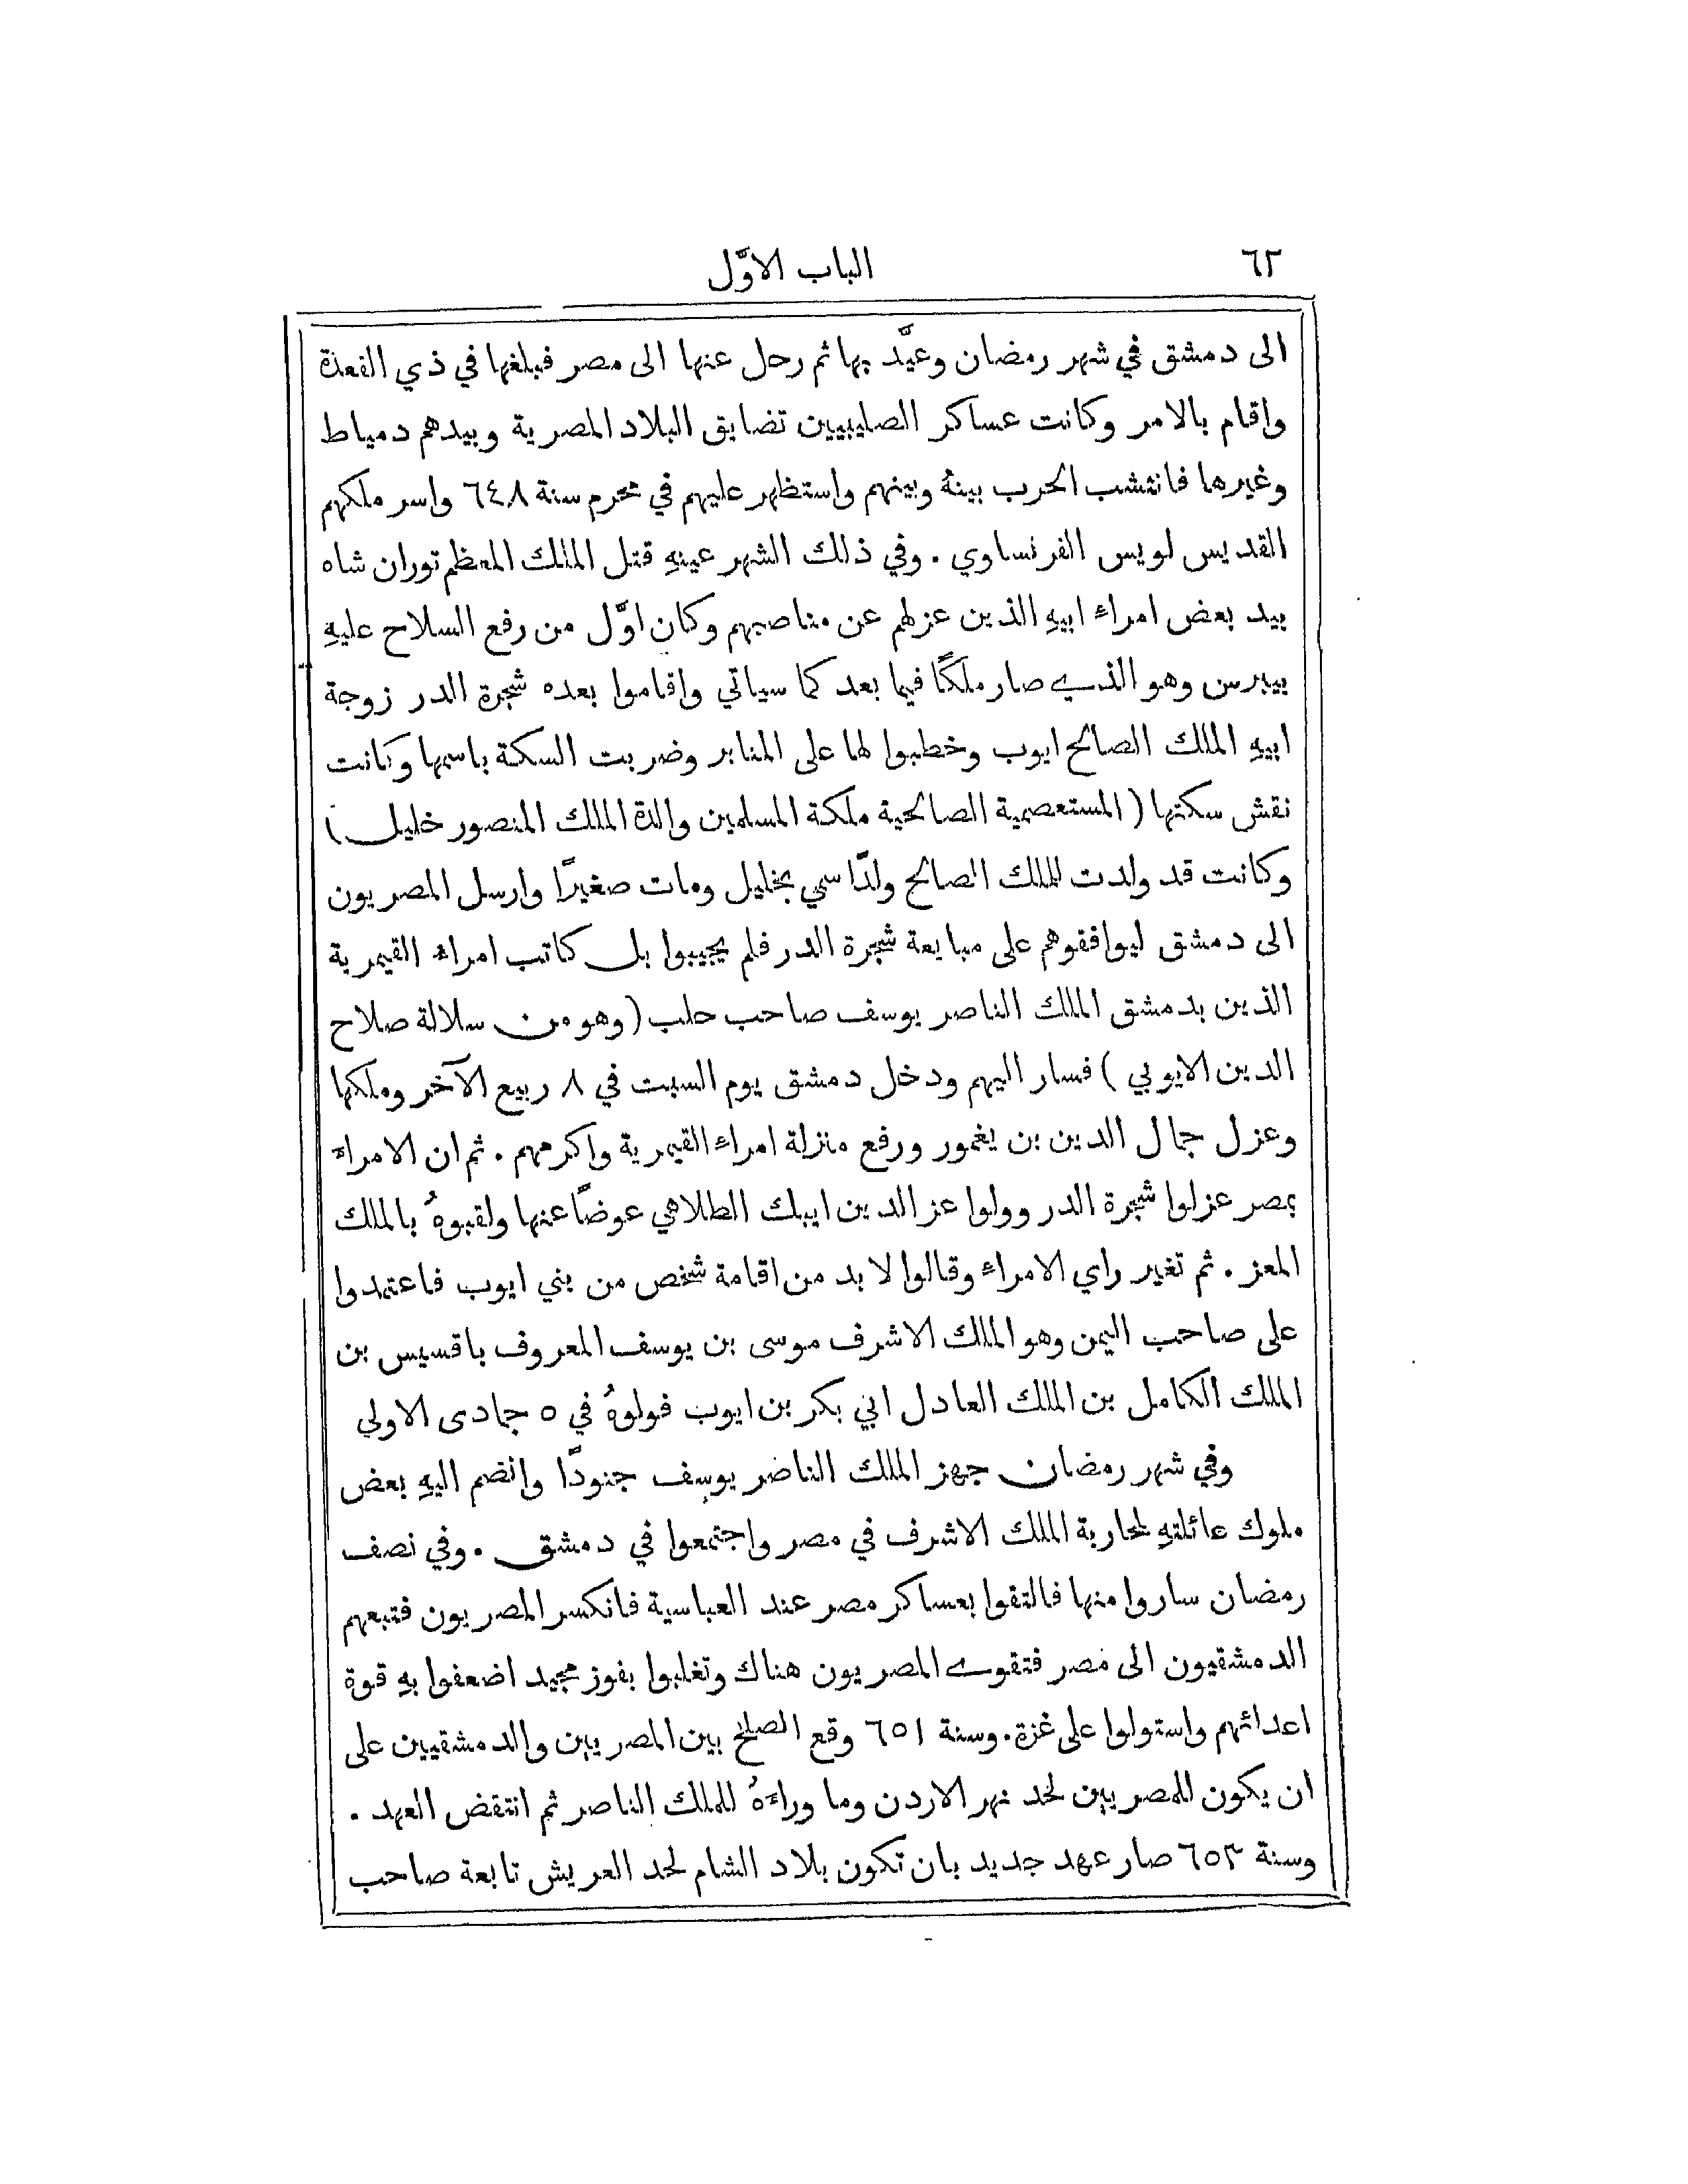 ٦٢
الباب الاوَّل
الى دمشق في شهر رمضان وعيَّد بها ثم رحل عنها الى مصر فبلغها في ذي القعدة
واقام بالامر وكانت عساكر الصليبيين تضايق البلاد المصرية وبيدهم دمياط
وغيرها فانتشب الحرب بينهُ وبينهم واستظهر عليهم في محرم سنة ٦٤٨ واسر ملكهم
القديس لويس الفرنساوي . وفي ذلك الشهر عينهِ قتل الملك المعظم توران شاه
بيد بعض امراء ابيهِ الذين عزلهم عن مناصبهم وكان اوَّل من رفع السلاح عليهِ
بيبرس وهو الذي صار ملكًا فيما بعد كما سياتي واقاموا بعده شجرة الدر زوجة
ابيهِ الملك الصالح ايوب وخطبوا لها على المنابر وضربت السكة باسمها وكانت
نقش سكتها ( المستعصمية الصالحية ملكة المسلمين والدة الملك المنصور خليل )
وكانت قد ولدت للملك الصالح ولدًا سمي بخليل ومات صغيرًا وارسل المصريون
الى دمشق ليوافقوهم على مبايعة شجرة الدر فلم يجيبوا بل كاتب امراء القيمرية
الذين بدمشق الملك الناصر يوسف صاحب حلب ( وهو من سلالة صلاح
الدين الايوبي ) فسار اليهم ودخل دمشق يوم السبت في ٨ ربيع الآخر وملكها
وعزل جمال الدين بن يغمور ورفع منزلة امراء القيمرية واكرمهم . ثم ان الامراء
بمصر عزلوا شجرة الدر وولوا عز الدين ايبك الطلاهي عوضًا عنها ولقبوهُ بالملك
المعز . ثم تغير راي الامراء وقالوا لا بد من اقامة شخص من بني ايوب فاعتمدوا
على صاحب اليمن وهو الملك الاشرف موسى بن يوسف المعروف باقسيس بن
الملك الكامل بن الملك العادل ابي بكر بن ايوب فولوهُ في ٥ جمادى الاولى
وفي شهر رمضان جهز الملك الناصر يوسف جنودًا وانضم اليهِ بعض
ملوك عائلتهِ لمحاربة الملك الاشرف في مصر واجتمعوا في دمشق . وفي نصف
رمضان ساروا منها فالتقوا بعساكر مصر عند العباسية فانكسر المصريون فتبعهم
الدمشقيون الى مصر فتقوى المصريون هناك وتغلبوا بفوز مجيد اضعفوا بهِ قوة
اعدائهم واستولوا على غزة. وسنة ٦٥١ وقع الصلح بين المصريين والدمشقيين على
ان يكون للمصريين لحد نهر الاردن وما وراءهُ للملك الناصر ثم انتقض العهد .
وسنة ٦٥٣ صار عهد جديد بان تكون بلاد الشام لحد العريش تابعة صاحب